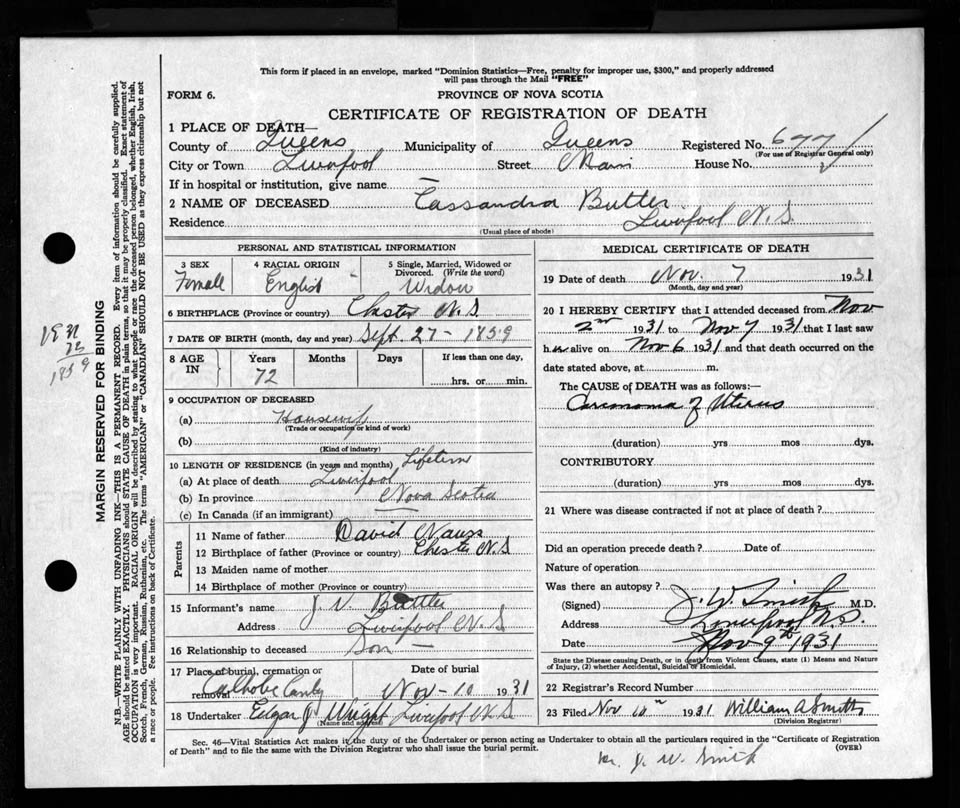 This form if placed in an envelope, marked "Dominion Statistics—Free, penalty for improper use, $300," and properly addressed
will pass through the Mail "FREE"
FORM 6.
PROVINCE OF NOVA SCOTIA
CERTIFICATE OF REGISTRATION OF DEATH
1 PLACE OF DEATH—
County of Queens Municipality of Queens Registered No. 677
(For use of Registrar General only)
City or Town Liverpool Street Main House No.
If in hospital or institution, give name —
2 NAME OF DECEASED Cassandra Butler
Residence Liverpool N.S.
(Usual place of abode)
PERSONAL AND STATISTICAL INFORMATION
3 SEX Female
4 RACIAL ORIGIN English
5 Single, Married, Widowed or Divorced. (Write the word) Widow
6 BIRTHPLACE (Province or country) Chester N.S.
7 DATE OF BIRTH (month, day and year) Sept. 27 - 1859
8 AGE IN Years 72 Months Days If less than one day, hrs. or min.
9 OCCUPATION OF DECEASED
(a) Housewife
(Trade or occupation or kind of work)
(b)
(Kind of industry)
10 LENGTH OF RESIDENCE (in years and months) Lifetime
(a) At place of death Liverpool
(b) In province Nova Scotia
(c) In Canada (if an immigrant)
Parents
11 Name of father David Nauss
12 Birthplace of father (Province or country) Chester N.S
13 Maiden name of mother
14 Birthplace of mother (Province or country)
15 Informant's name J. V. Butler
Address Liverpool N.S
16 Relationship to deceased Son —
17 Place of burial, cremation or removal
Date of burial Nov - 10 1931
18 Undertaker Edgar J Wright Liverpool N.S.
(Name and address)
MEDICAL CERTIFICATE OF DEATH
19 Date of death Nov. 7 1931
(Month, day and year)
20 I HEREBY CERTIFY that I attended deceased from Nov
2nd 1931 to Nov 7 1931 that I last saw
her alive on Nov 6 1931 and that death occurred on the
date stated above, at m.
The CAUSE of DEATH was as follows:—
Carcinoma of Uterus
(duration) yrs mos dys.
CONTRIBUTORY
(duration) yrs mos dys.
21 Where was disease contracted if not at place of death?
Did an operation precede death? Date of
Nature of operation
Was there an autopsy?
(Signed) J. W. Smith M.D.
Address Liverpool N.S.
Date Nov 9th 1931
State the Disease causing Death, or in death from Violent Causes, state (1) Means and Nature
of Injury, (2) whether Accidental, Suicidal or Homicidal.
22 Registrar's Record Number
23 Filed Nov 10th 1931 William A Smith
(Division Registrar)
Sec. 46—Vital Statistics Act makes it the duty of the Undertaker or person acting as Undertaker to obtain all the particulars required in the "Certificate of Registration
of Death" and to file the same with the Division Registrar who shall issue the burial permit.
(OVER)
J. W. Smith
MARGIN RESERVED FOR BINDING
N.B.—WRITE PLAINLY WITH UNFADING INK—THIS IS A PERMANENT RECORD. Every item of information should be carefully supplied.
AGE should be stated EXACTLY. PHYSICIANS should STATE CAUSE OF DEATH in plain terms, so that it may be properly classified. Exact statement of
OCCUPATION is very important. RACIAL ORIGIN will be described by stating to what people or race the deceased person belonged, whether English, Irish,
Scotch, French, German, Russian, Ruthenian, etc. The terms "AMERICAN" or "CANADIAN" SHOULD NOT BE USED as they express citizenship but not
a race or people. See instructions on back of Certificate.
1931
72
1859